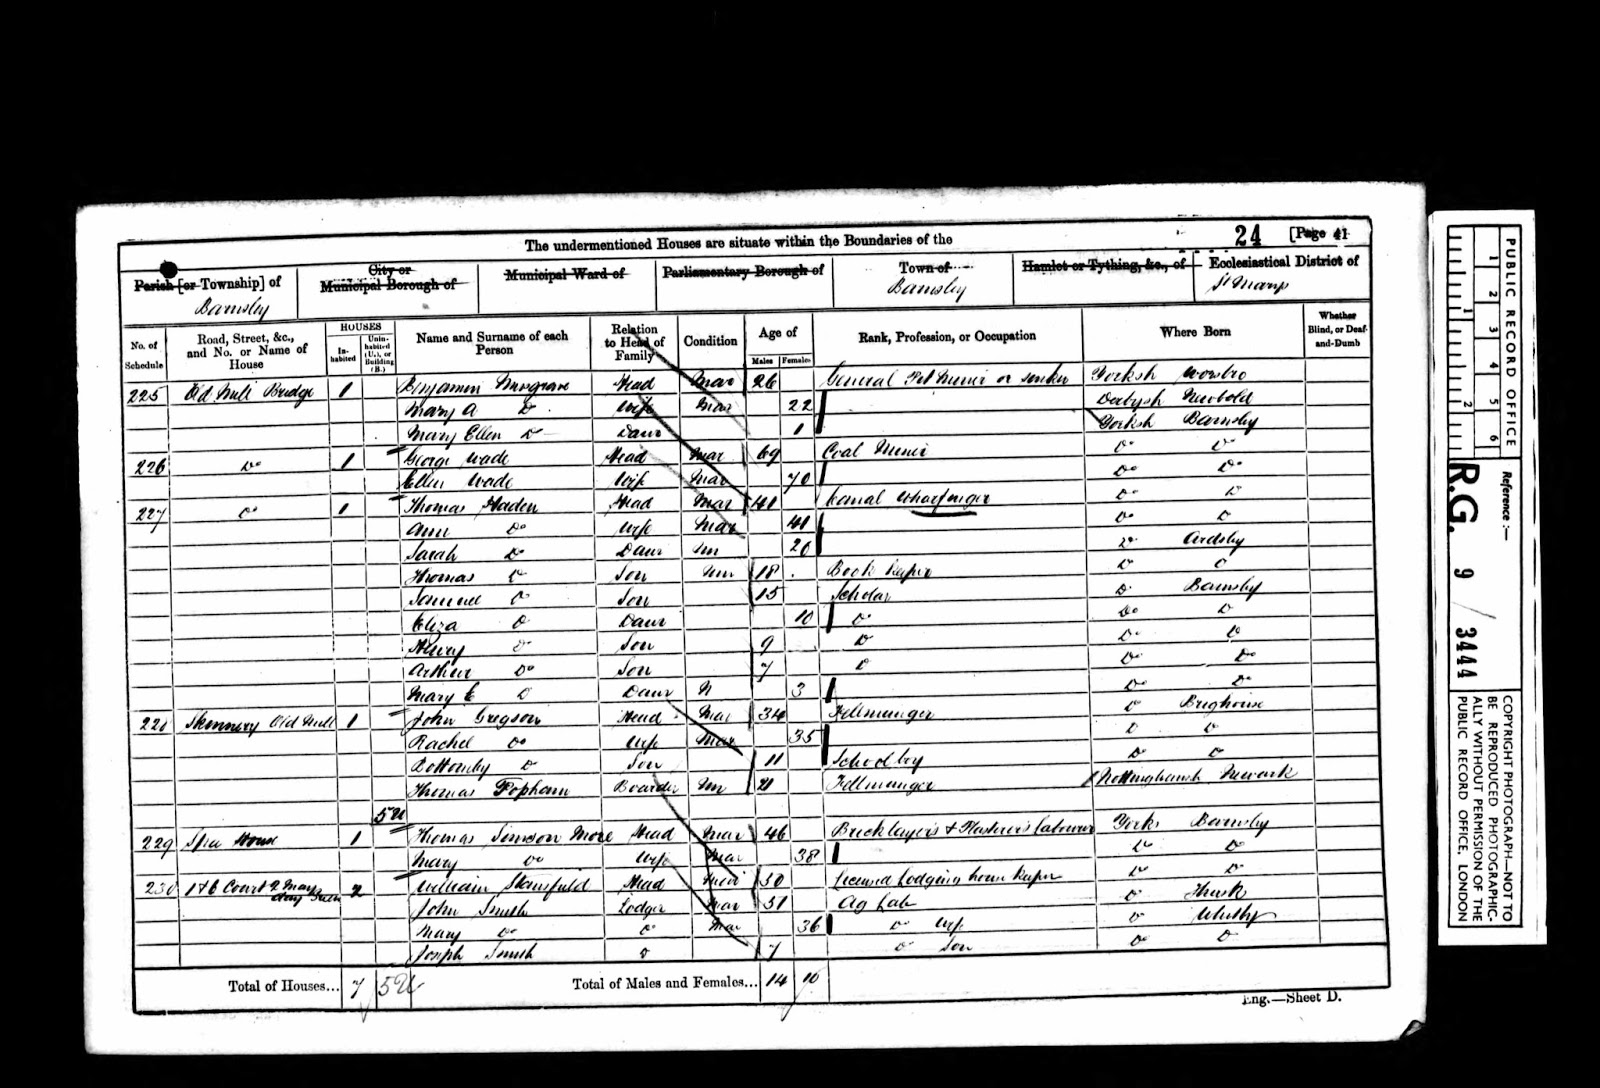 The undermentioned Houses are situate within the Boundaries of the 24 [Page 41
Parish [or Township] of City or Municipal Borough of Municipal Ward of Parliamentary Borough of Town of Hamlet or Tything, &c., of Ecclesiastical District of
Barnsley Barnsley St Marys
No. of Schedule Road, Street, &c., and No. or Name of House HOUSES In-habited Unin-habited (U.), or Building (B.) Name and Surname of each Person Relation to Head of Family Condition Age of Males Females Rank, Profession, or Occupation Where Born Whether Blind, or Deaf-and-Dumb
225 Old Mill Bridge 1 Benjamin Musgrave Head Mar 26 General Pit Miner or Sinker Yorksh Worsbro
Mary A Do Wife Mar 22 Derbysh Newbold
Mary Ellen Do Daur 1 Yorksh Barnsley
226 Do 1 George Wade Head Mar 69 Coal Miner Do Do
Ellen Wade Wife Mar 70 Do Do
227 Do 1 Thomas Haden Head Mar 41 Kanal Wharfinger Do Do
Ann Do Wife Mar 41 Do Do
Sarah Do Daur Un 20 Do Ardsley
Thomas Do Son Un 18 Book Keeper Do Do
Samuel Do Son 15 Scholar Do Barnsley
Eliza Do Daur 10 Do Do Do
Henry Do Son 9 Do Do Do
Arthur Do Son 7 Do Do Do
Mary E Do Daur 3 Do Do
228 Skinnery Old Mill 1 John Gregson Head Mar 34 Fellmonger Do Brighouse
Rachel Do Wife Mar 35 Do Do
Bottomley Do Son 11 School boy Do Do
Thomas Popham Boarder Un 21 Fellmonger Nottinghamsh Newark
5U
229 Spa House 1 Thomas Simeson More Head Mar 46 Bricklayers & Plasterers Labourer Yorks Barnsley
Mary Do Wife Mar 38 Do Do
230 1 & 6 Court 2 May Day Green 2 William Stansfield Head 50 Licensed Lodging house Keeper Do Do
John Smith Lodger Mar 51 Ag Lab Do Thirsk
Mary Do Do Mar 36 Do Wife Do Whitby
Joseph Smith Do 7 Do Son Do Do
Total of Houses... 7 5U Total of Males and Females... 14 10
Eng.—Sheet D.
PUBLIC RECORD OFFICE
1 2 3 4 5 6
1 2
Reference:—
R.G. 9 / 3444
COPYRIGHT PHOTOGRAPH—NOT TO
BE REPRODUCED PHOTOGRAPHIC-
ALLY WITHOUT PERMISSION OF THE
PUBLIC RECORD OFFICE, LONDON